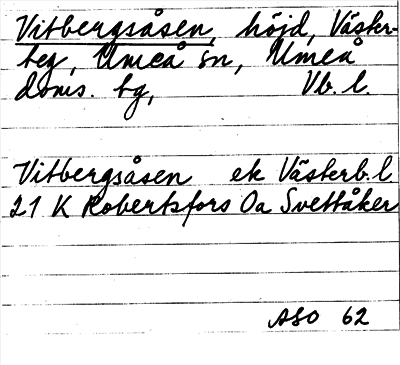 Vitbergsåsen, höjd, Väster-
teg, Umeå sn, Umeå
doms. tg, Vb. l.
Vitbergsåsen ek Västerb. l
21 K Robertsfors Oa Svettåker
ASO 62